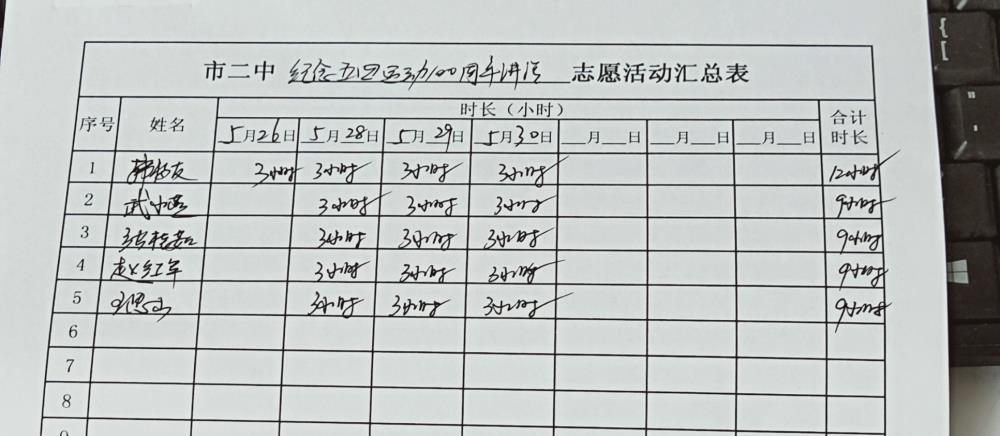 市二中 纪念五四运动100周年讲活 志愿活动汇总表
序号 姓名 时长（小时） 合计时长
5月26日 5月28日 5月29日 5月30日 __月__日 __月__日 __月__日
1 3小时 3小时 3小时 3小时 12小时
2 武小莲 3小时 3小时 3小时 9小时
3 3小时 3小时 3小时 9小时
4 赵红军 3小时 3小时 3小时 9小时
5 王思 3小时 3小时 3小时 9小时
6
7
8